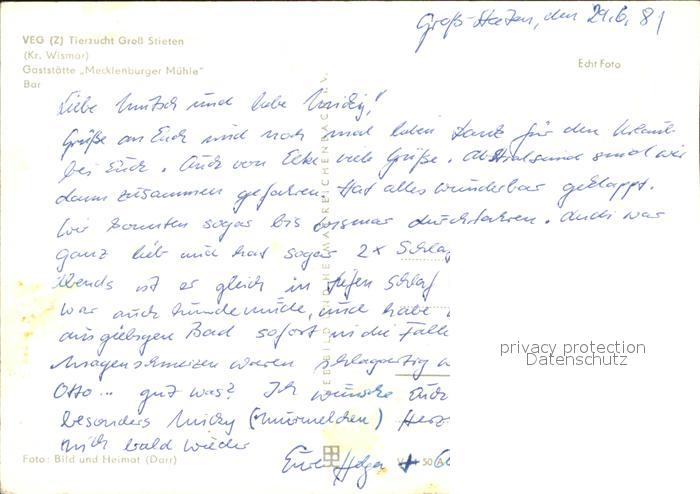 Groß-Stieten, den 29.6.81
VEG (Z) Tierzucht Groß Stieten
(Kr. Wismar)
Gaststätte „Mecklenburger Mühle"
Bar
Echt Foto
Liebe und liebe
Grüße an Euch und noch mal lieben Dank für den Urlaub
bei Euch. Auch von Elke viele Grüße. Ab Stralsund sind wir
dann zusammen gefahren. Hat alles wunderbar geklappt.
Wir konnten sogar bis Wismar durchfahren. war
ganz lieb und hat sogar 2x
Abends ist er gleich in tiefen Schlaf
war auch hundemüde, und habe
ausgiebigen Bad sofort in die Falle
Magenschmerzen waren schlagartig
Otto... gut was? Ich wünsche Euch
besonders (Murmelchen) Herz
mich bald wieder
Eure Holger +
privacy protection
Datenschutz
Foto: Bild und Heimat (Darr)